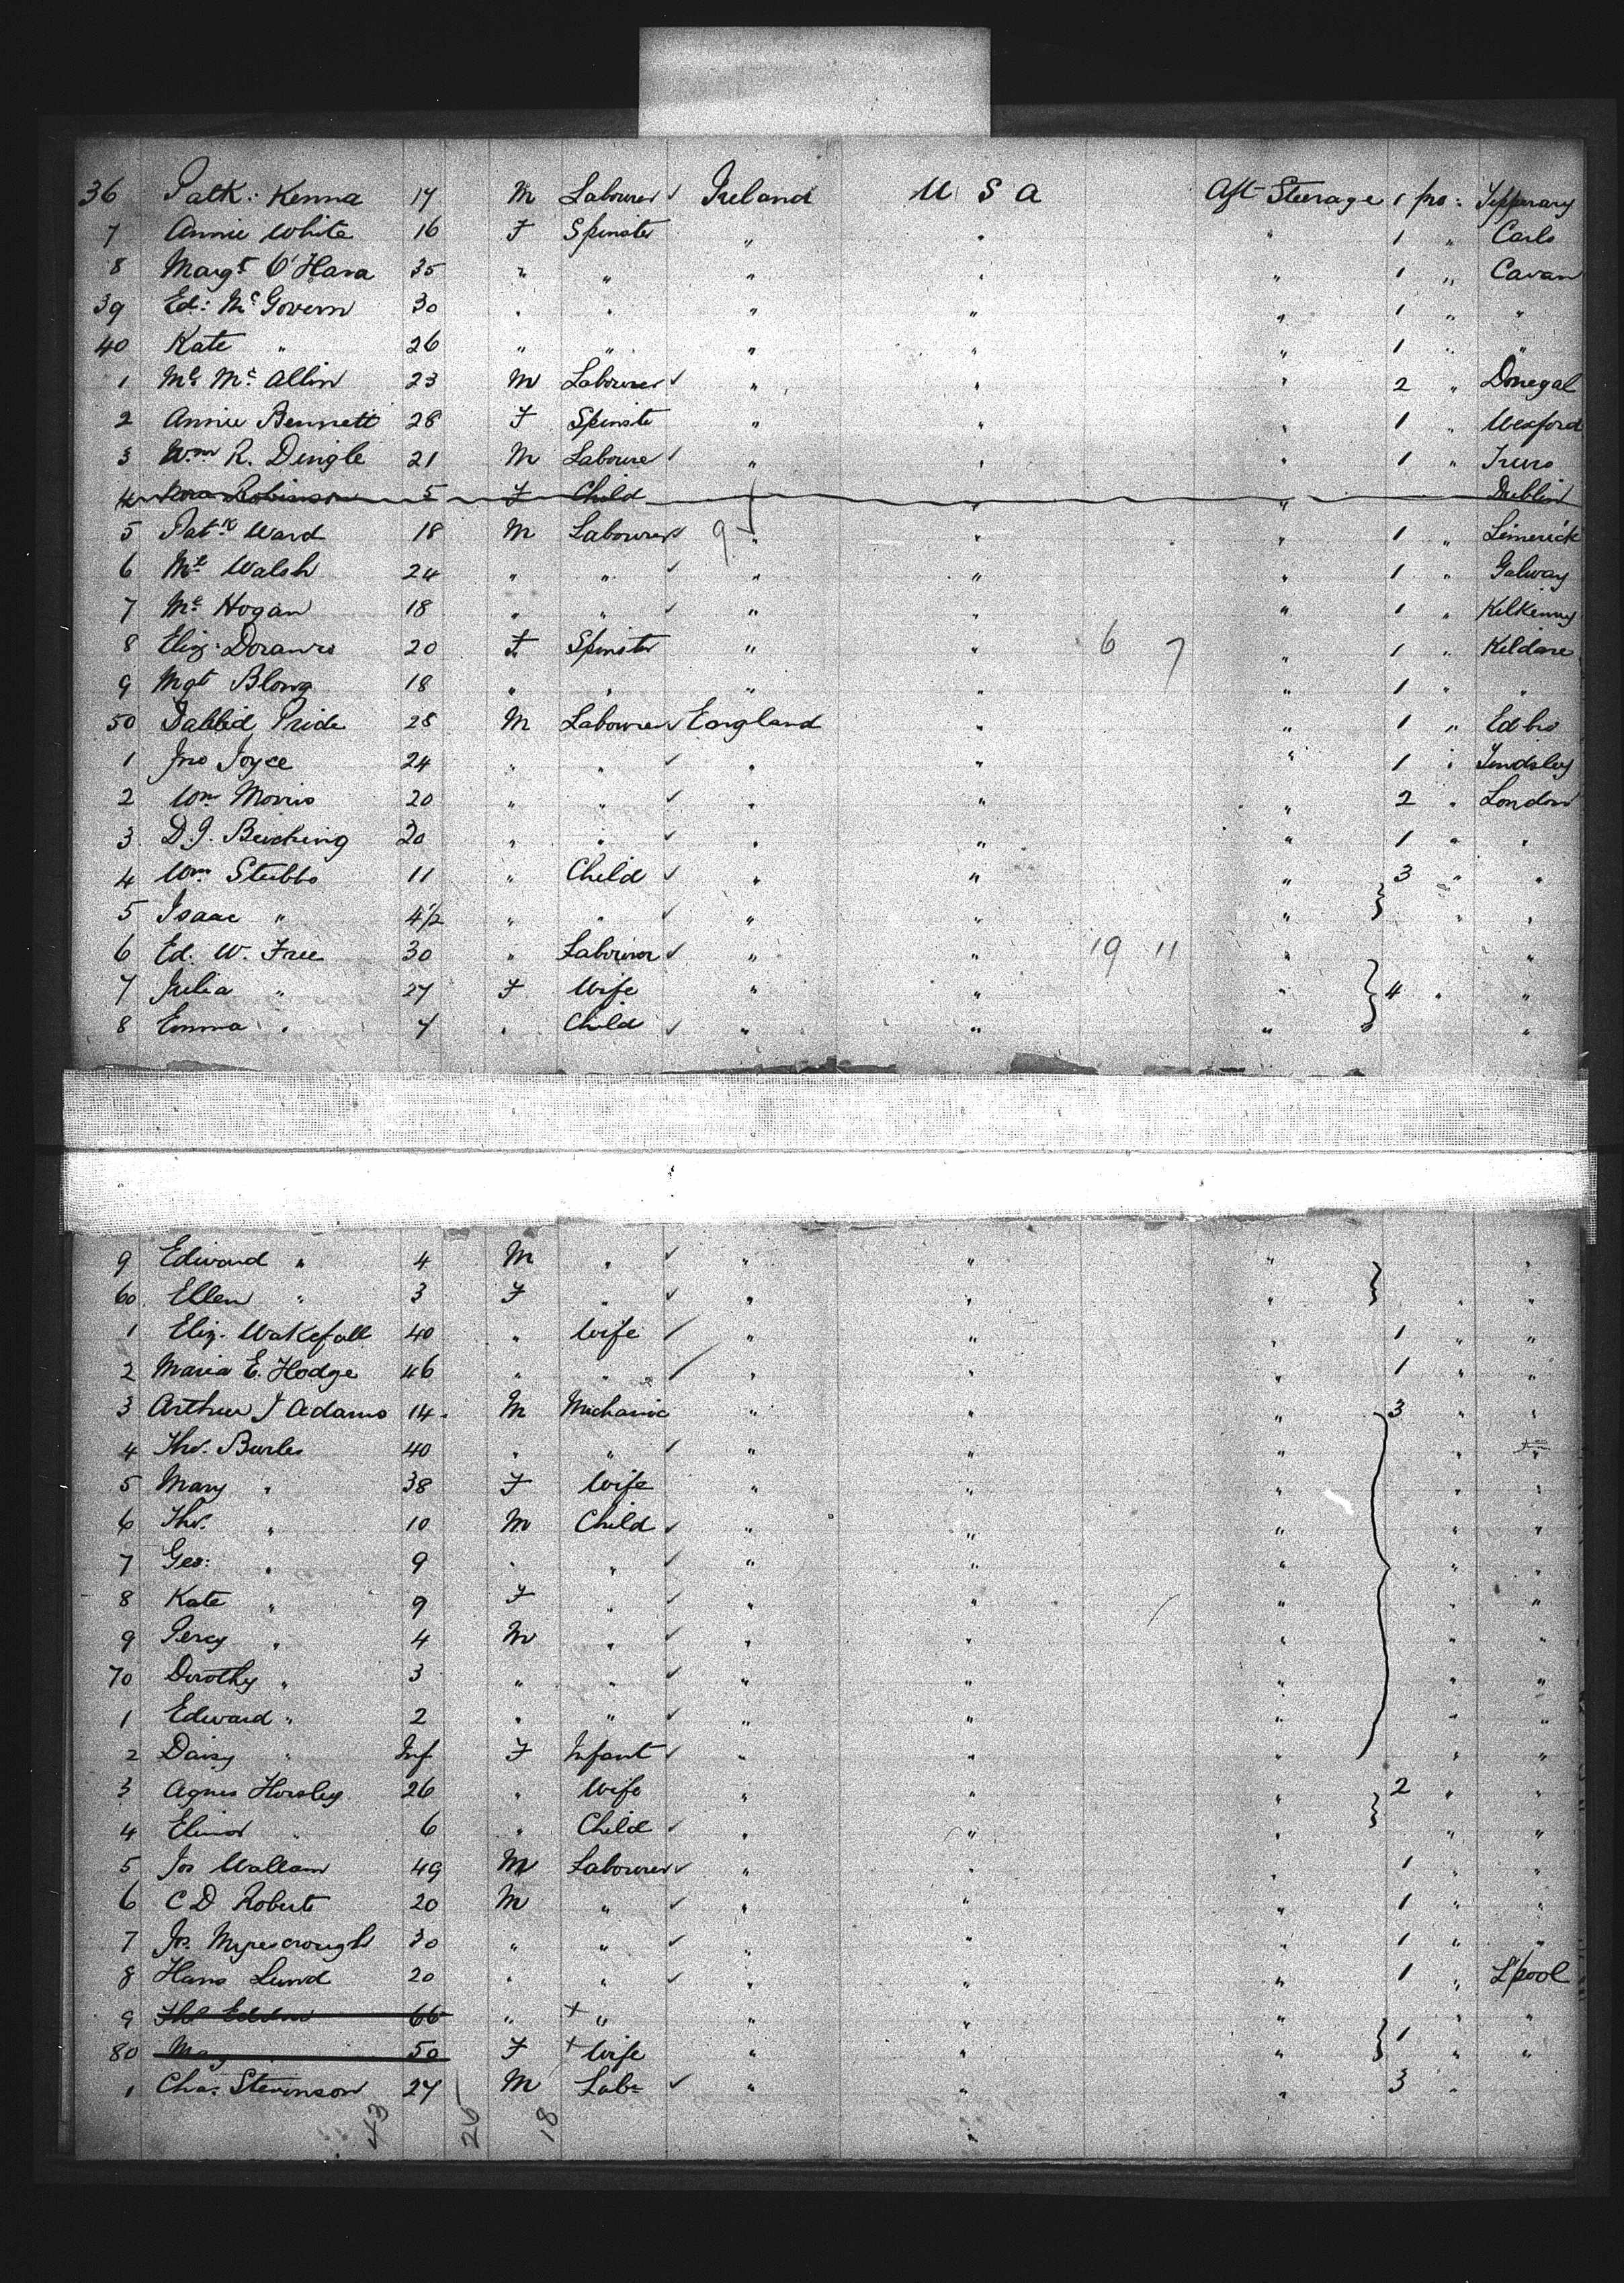 36 Patk: Kenna 17 M Labourer ✓ Ireland U S A Aft Steerage 1 pro: Tipperary
7 Annie White 16 F Spinster " " " 1 " Carlo
8 Margt O'Hara 35 " " " " " 1 " Cavan
39 Ed: McGovern 30 " " " " " 1 " "
40 Kate " 26 " " " " " 1 " "
1 Ml McAllin 23 M Labourer ✓ " " " 2 " Donegal
2 Annie Bennett 28 F Spinste " " " 1 " Wexford
3 Wm R. Dingle 21 M Laboure ✓ " " " 1 " Truro
4 Nora Robinson 5 F Child " " Dublin
5 Patk Ward 18 M Labourer ✓ 9 " " " 1 " Limerick
6 Ml Walsh 24 " " ✓ " " " 1 " Galway
7 Ml Hogan 18 " " ✓ " " " 1 " Kilkenny
8 Eliz: 20 F Spinster " " 6 7 " 1 " Kildare
9 Mgt Blong 18 " " " " " 1 " "
50 Pride 28 M Labourer ✓ England " " 1 " Edbro
1 Jno Joyce 24 " " ✓ " " " 1 " Lindsley
2 Wm Morris 20 " " ✓ " " " 2 " London
3 D.J. 20 " " ✓ " " " 1 " "
4 Wm Stubbs 11 " Child ✓ " " " 3 " "
5 Isaac " 4½ " " ✓ " " " " "
6 Ed. W. Free 30 " Labourer ✓ " " 19 11 " "
7 Julia " 27 F Wife " " " 4 " "
8 Emma " 7 " Child ✓ " " " "
9 Edward " 4 M " ✓ " " " "
60 Ellen " 3 F " ✓ " " " " "
1 Eliz. Wakefall 40 " Wife ✓ " " " 1 " "
2 Maria E. Hodge 46 " " ✓ " " " 1 " "
3 Arthur J Adams 14 M Mechanic " " " 3 " "
4 Tho. Burles 40 " " ✓ " " " " "
5 Mary " 38 F Wife " " " " "
6 Tho. " 10 M Child ✓ " " " " "
7 Geo: " 9 " " ✓ " " " " "
8 Kate " 9 F " ✓ " " " "
9 Percy " 4 M " ✓ " " " " "
70 Dorothy " 3 " " ✓ " " " " "
1 Edward " 2 " " ✓ " " " " "
2 Daisy " Inf F Infant ✓ " " " " "
3 Agnes Horsley 26 " Wife " " " 2 " "
4 Elinor " 6 " Child ✓ " " " " "
5 Jos Wallam 49 M Labourer ✓ " " " 1 " "
6 C D Roberts 20 M " ✓ " " " 1 " "
7 Jos. 30 " " ✓ " " " 1 " "
8 Hans Lund 20 " " ✓ " " " 1 " L'pool
9 66 " + " " " " " "
80 50 F + Wife " " " 1 " "
1 Chas. Stevinson 27 M Labr ✓ " " " 3 "
43 26 18